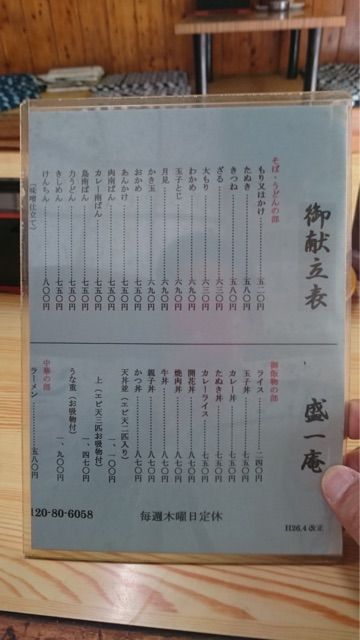 御献立表
盛一庵
そば・うどんの部
もり又はかけ………五二〇円
たぬき………五八〇円
きつね………五八〇円
ざる………六三〇円
大もり………六三〇円
わかめ………六九〇円
玉子とじ………六九〇円
月見………六九〇円
かき玉………六九〇円
おかめ………七五〇円
あんかけ………七五〇円
肉南ばん………七五〇円
カレー南ばん………七五〇円
鳥南ばん………七五〇円
力うどん………七五〇円
きしめん………七五〇円
けんちん………八〇〇円
(味噌仕立て)
御飯物の部
ライス………二四〇円
玉子丼………七五〇円
カレー丼………七五〇円
たぬき丼………七五〇円
カレーライス………七五〇円
開花丼………八七〇円
焼肉丼………八七〇円
牛丼………八七〇円
親子丼………八七〇円
かつ丼………八七〇円
天丼並(エビ天二匹入り)
一、一〇〇円
上(エビ天三匹お吸物付)
一、四七〇円
うな重(お吸物付)
一、九〇〇円
中華の部
ラーメン………五八〇円
毎週木曜日定休
120-80-6058
H26.4改正